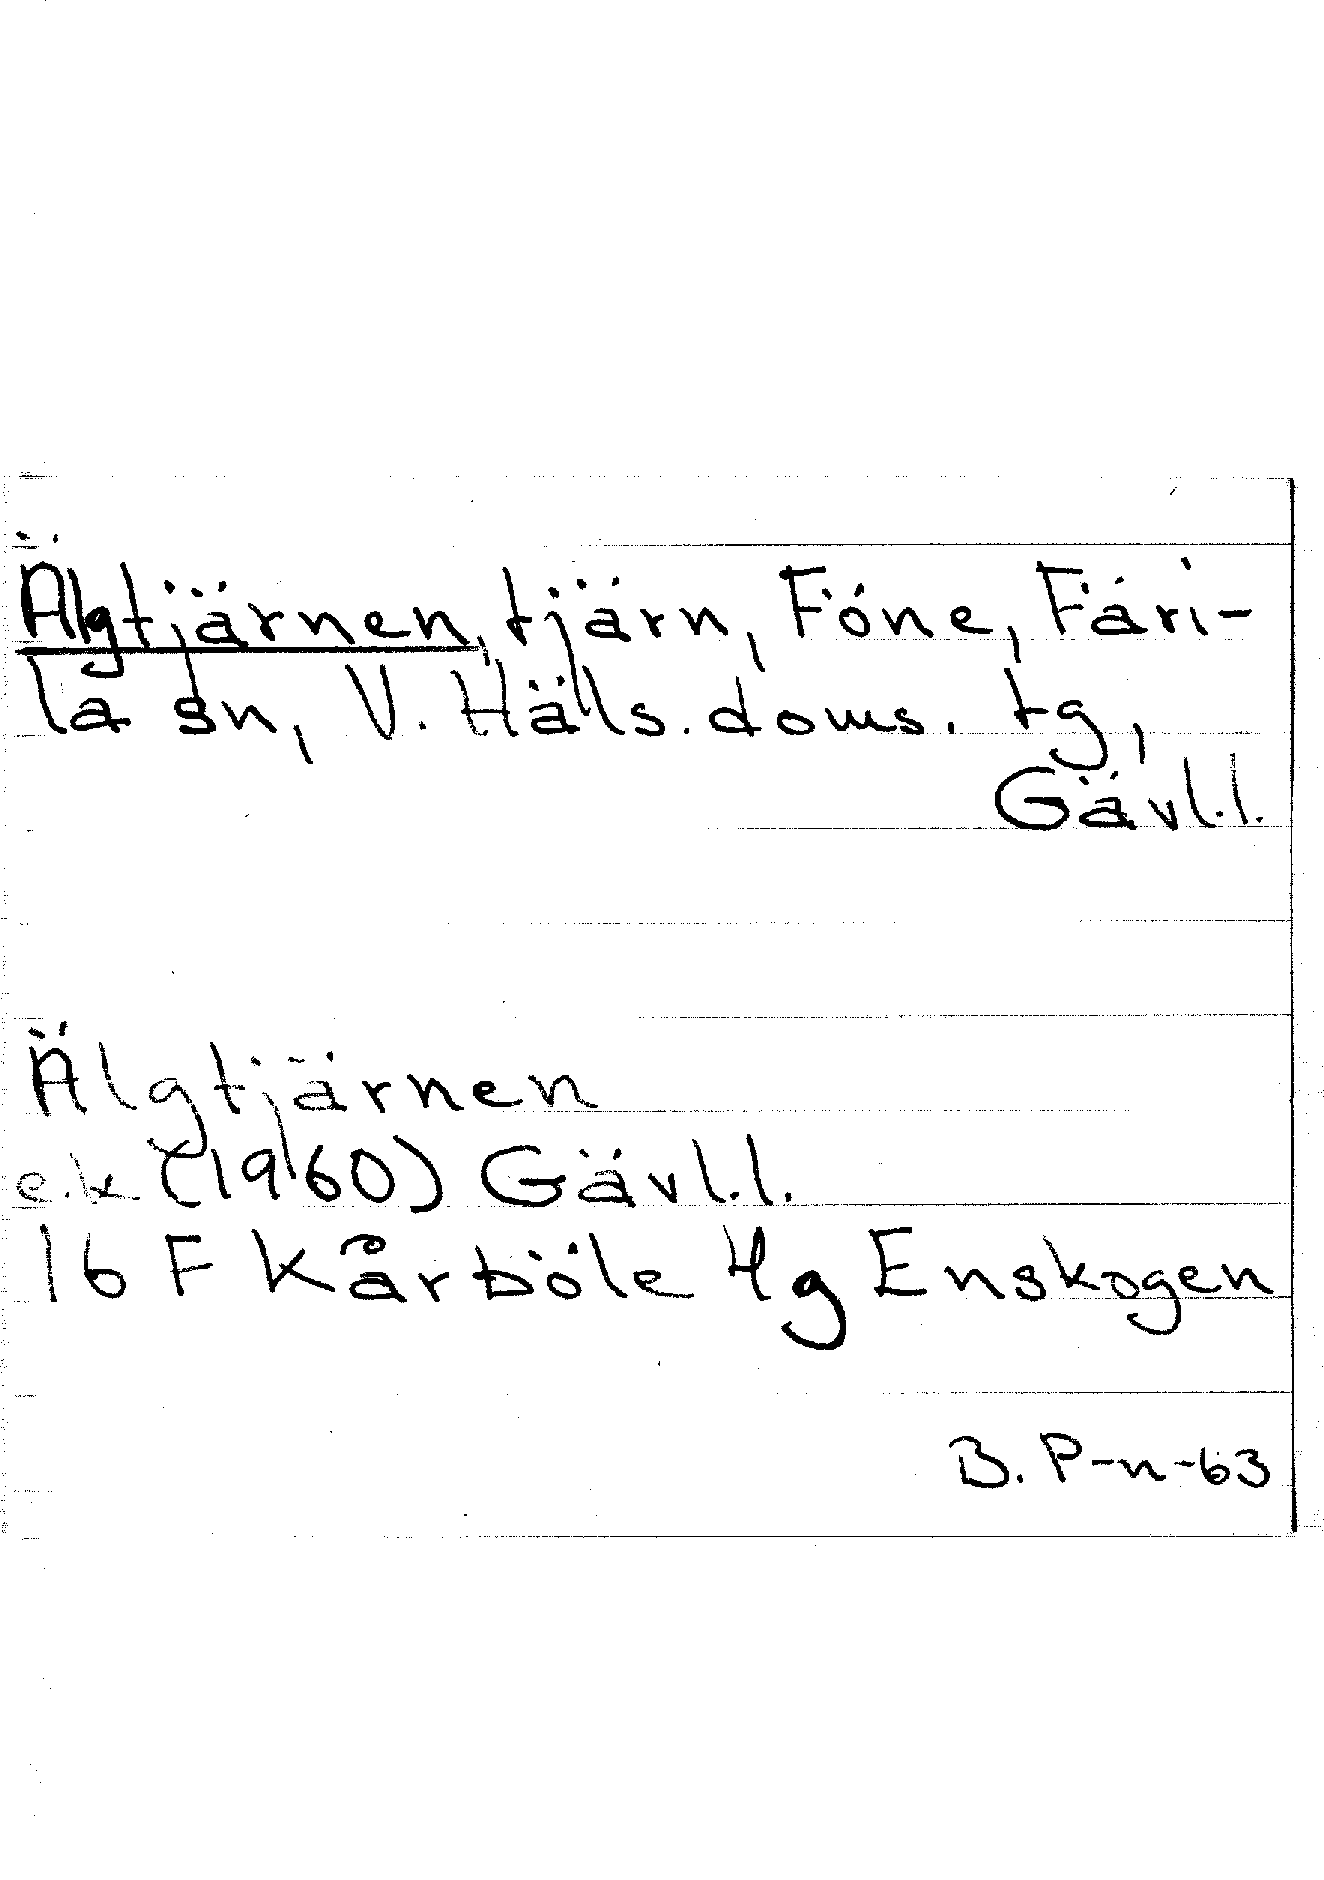 Älgtjärnen, tjärn, Föne, Färi-
la sn, V. Häls. doms. tg,
Gävl.l.
Älgtjärnen
e.k (1960) Gävl.l.
16 F Kårböle 4g Enskogen
B. P-n-63